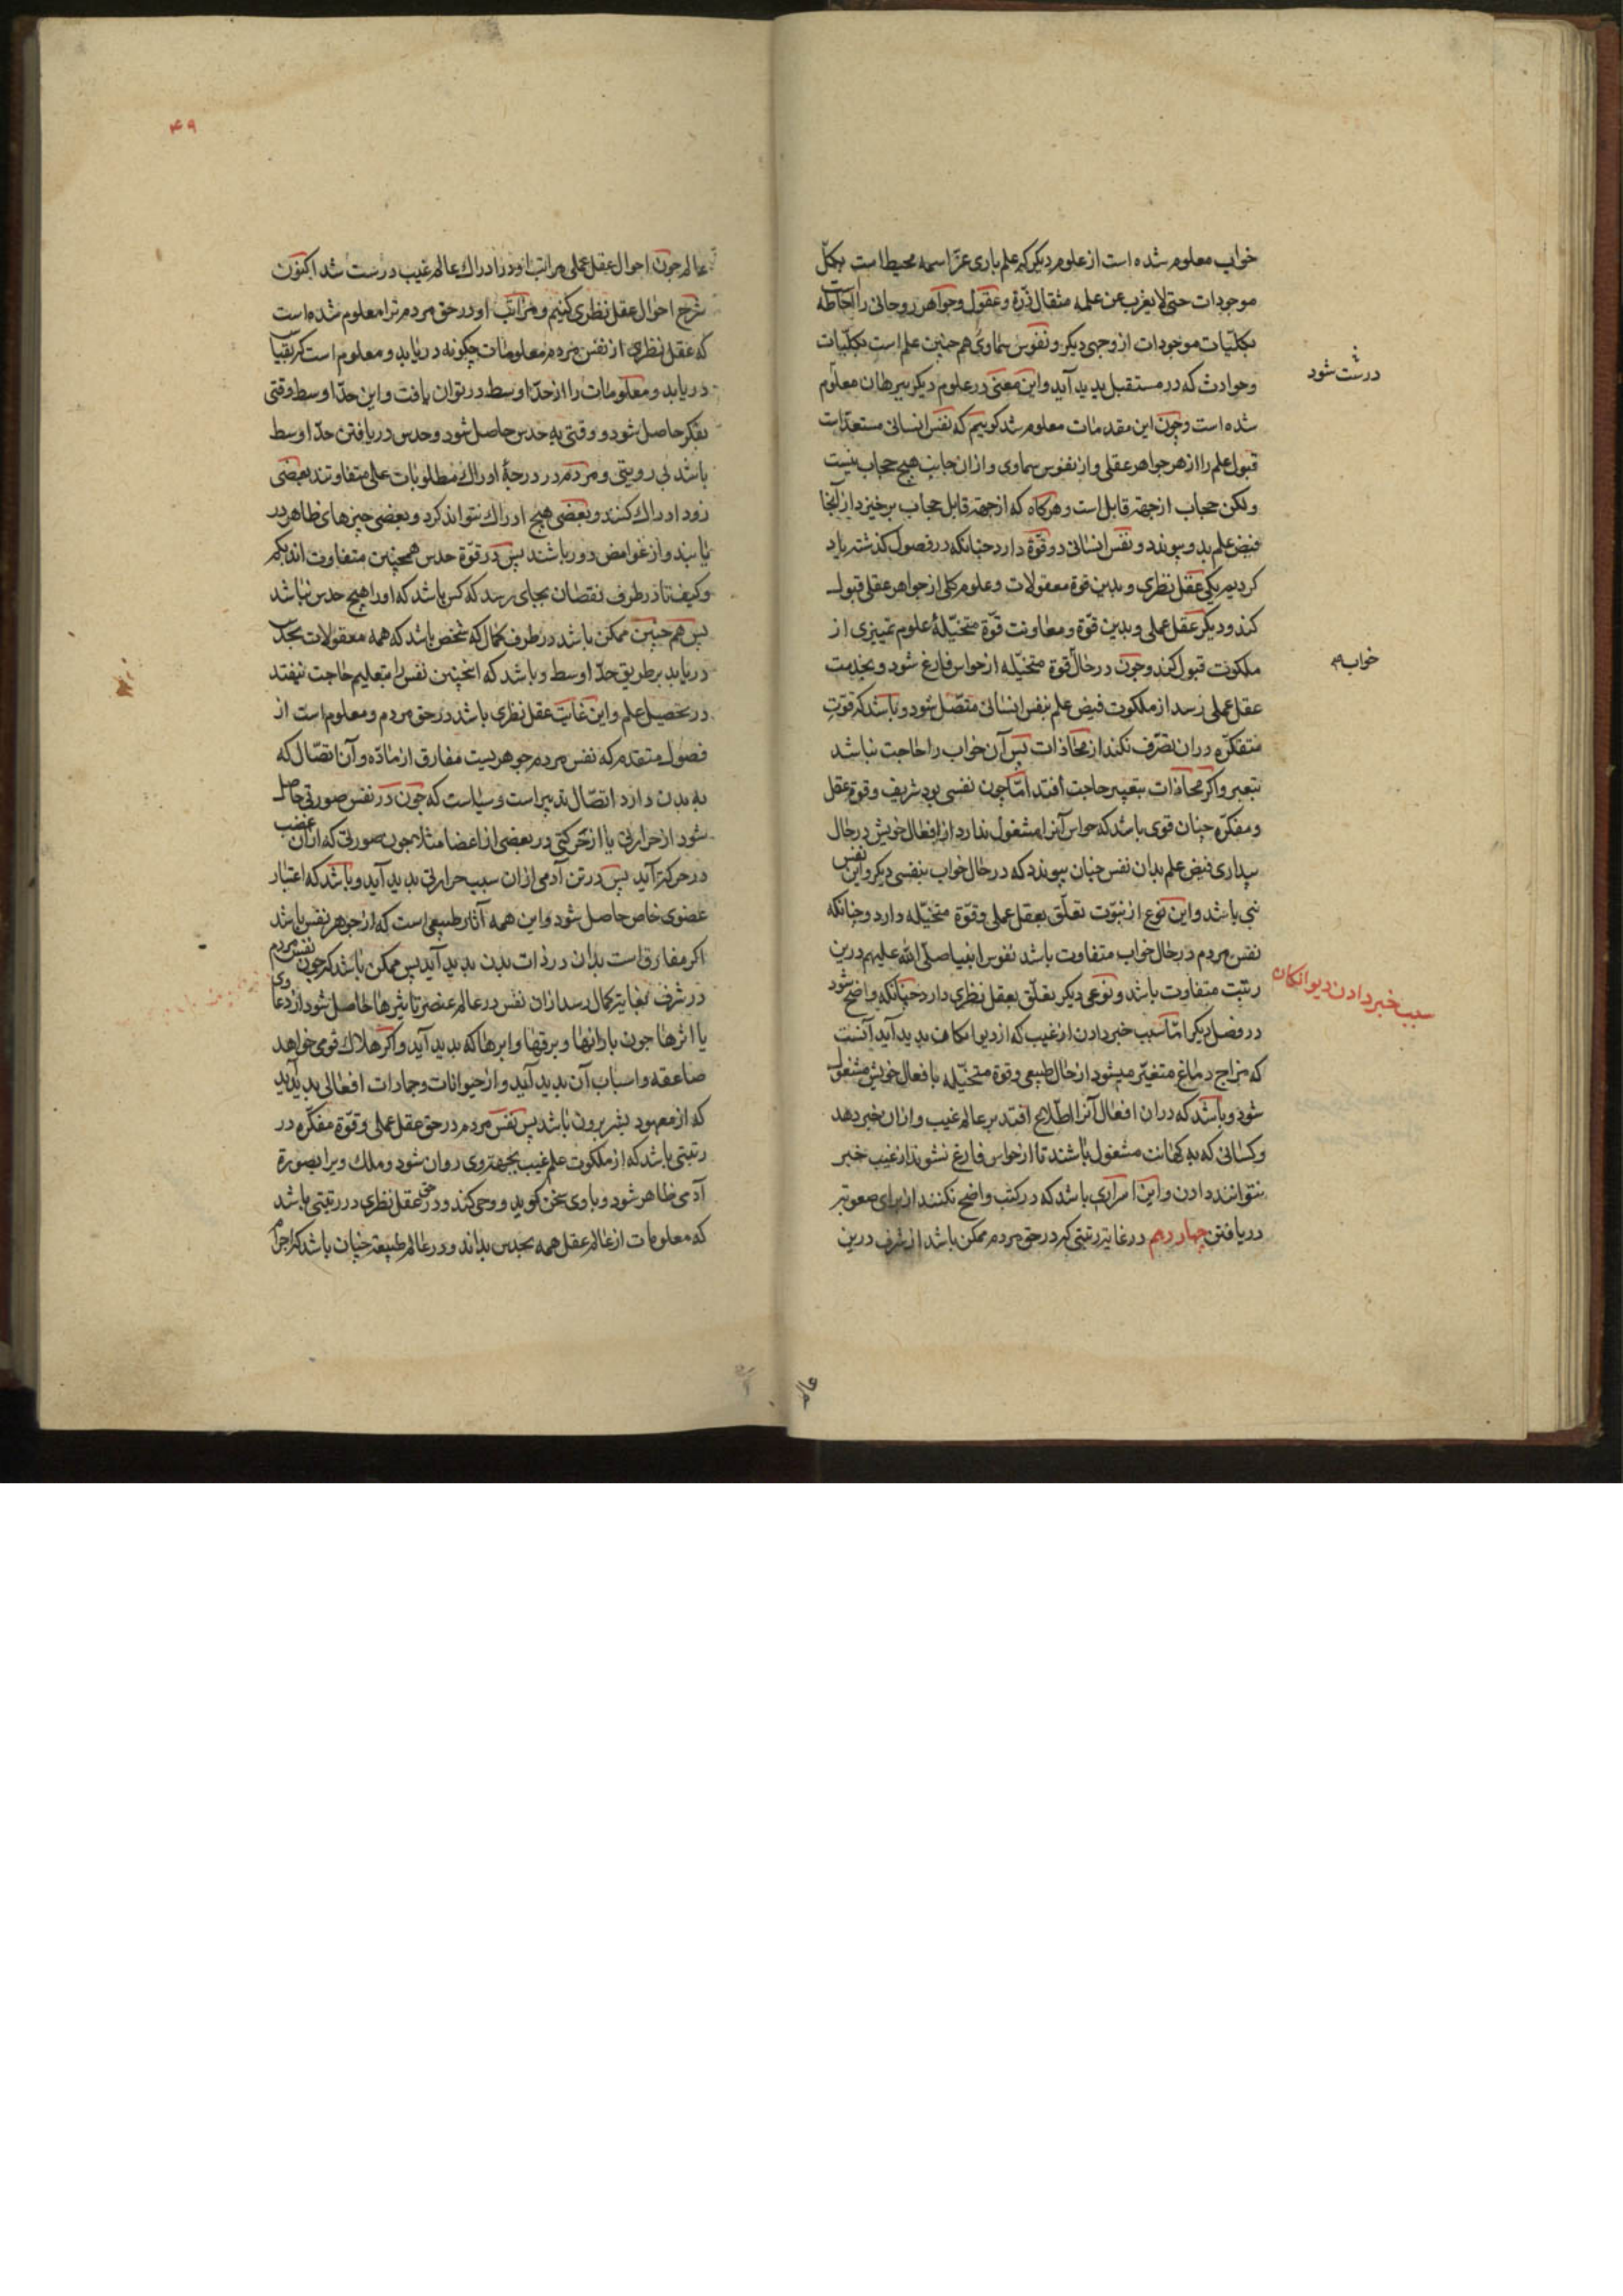 خواب معلوم شده است از علوم دیکر که علم باری عزّ اسمه محیط است بکلّ
موجودات حتی لا یعزب عن علمه مثقال ذرّة و عقول و جواهر روحانی را احاطه است
بکلّیات موجودات از وجهی دیکر و نفوس سماوی هم چنین علم است بکلّیات
وحوادث که در مستقبل بدید آید واین معنی در علوم دیکر ببرهان معلوم
درست شود
شده است وچون این مقدمات معلوم شد کوییم که نفس انسانی مستعدّ است
قبول علم را از هر جواهر عقلی و از نفوس سماوی و از ان جانب هیچ حجاب نیست
ولکن حجاب از جهة قابل است وهرکاه که از جهة قابل حجاب برخیزد از آنجا
فیض علم بدو پیوندد و نفس انسانی دو قوّة دارد چنانکه در فصول کذشته یاد
کردیم یکی عقل نظری و بدین قوة معقولات وعلوم کلی از جواهر عقلی قبول
کند و دیکر عقل عملی وبدین قوّة ومعاونت قوّة متخیّلة علوم تمییزی از
ملکوت قبول کند وچون در حال قوة متخیّله از حواس فارغ شود وبخدمت
خواب
عقل عملی رسد از ملکوت فیض علم بنفس انسانی متّصل شود و باشد که قوّت
متفکرّه دران تصّرف نکند از محاذات پس آن خواب را حاجت نباشد
بتعبیر واکر محاذات بتعبیر حاجت افتد امّا چون نفسی بود شریف وقوة عقل
ومفکرّه چنان قوی باشد که حواس آنرا مشغول ندارد از افعال خویش در حال
بیداری فیض علم بدان نفس چنان پیوندد که در حال خواب بنفسی دیکر واین نفس
نبی باشد واین نوع از نبوّت تعلّق بعقل عملی وقوّة متخیّله دارد وچنانکه
نفس مردم در حال خواب متفاوت باشد نفوس انبیا صلّی الله علیهم درین
رتبت متفاوت باشد ونوعی دیکر تعلّق بعقل نظری دارد چنانکه واضح شود
سبب خبر دادن دیوانکان
در فصل دیکر امّا سبب خبر دادن از غیب که از دیوانکان بدید آید آنست
که مزاج دماغ متغیّر میشود از حال طبیعی وقوة متخیّله بافعال خویش مشغول
شود وباشد که دران افعال آنرا اطّلاع افتد بر عالم غیب و ازان خبر دهد
وکسانی که به کهانت مشغول باشند تا از حواس فارغ نشوند از غیب خبر
نتوانند دادن واین اسراری باشد که در کتب واضح نکنند از برای صعوبة
دریافتن چهاردهم در غایة رتبتی که در حق مردم ممکن باشد از شرف درین
عالم
۴۹
عالم چون احوال عقل عملی ومراتب او در ادراک عالم غیب درست شد اکنون
شرح احوال عقل نظری کنیم ومراتب او در حق مردم ترا معلوم شده است
که عقل نظری از نفس مردم معلومات چکونه دریابد ومعلوم است که بقیاس
دریابد ومعلومات را از حدّ اوسط در توان یافت واین حدّ اوسط وقتی
بفکر حاصل شود و وقتی به حدس حاصل شود وحدس دریافتن حدّ اوسط
باشد بی رویتی ومردم در درجة ادراک مطلوبات علمی متفاوتند بعضی
زود ادراک کنند وبعضی هیچ ادراک نتواند کرد وبعضی چیزهای ظاهر در
یابند و از غوامض دور باشند پس در قوّة حدس همچنین متفاوت اند بکم
وکیف تا در طرف نقصان بجای رسد که کس باشد که اورا هیچ حدس نباشد
پس هم چنین ممکن باشد در طرف کمال که شخص باشد که همه معقولات بحدس
دریابد بر طریق حدّ اوسط وباشد که اینچنین نفس را بتعلیم حاجت نیفتد
در تحصیل علم واین غایت عقل نظری باشد در حق مردم ومعلوم است از
فصول متقدم که نفس مردم جوهریست مفارق از مادّه وآن اتصّال که
به بدن دارد اتصّال تدبیر است وسیاست که چون در نفس صورتی حاصل
شود از حرارتی یا از حرکتی در بعضی از اعضا مثلا چون صورتی که ازان غضب
در حرکة آید پس در تن آدمی ازان سبب حرارتی بدید آید وباشد که اعتبار
عضوی خاص حاصل شود واین همه آثار طبیعی است که از جوهر نفس باشد
اکر مفارق است بدان در ذات بدن بدید آید پس ممکن باشد که چون نفس مردم
در شرف بغایة کمال رسد ازان نفس در عالم عنصر تاثیرها حاصل شود از دعا وی
یا اثرها چون بارانها وبرقها وابرها که بدید آید واکر هلاک قومی خواهد
صاعقه واسباب آن بدید آید و از حیوانات وجمادات افعالی بدید آید
که از معهود بشر برون باشد پس نفس مردم در حق عقل عملی وقوّة مفکّره در
رتبتی باشد که از ملکوت علم غیب بجهة وی روان شود وملک ویرا بصورة
آدمی ظاهر شود وبا وی سخن کوید و وحی کند ودر حق عقل نظری در رتبتی باشد
که معلومات از عالم عقل همه بحدس بداند ودر عالم طبیعة چنان باشد که اجرام